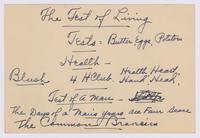 The Test of Living
Tests = Butter Eggs, Potatoes
Health -
Blush 4 H Club - Health, Heart,
Hand, Head,
Test of a Man -
The Days of a Man's years are Four Score
The Common Branches